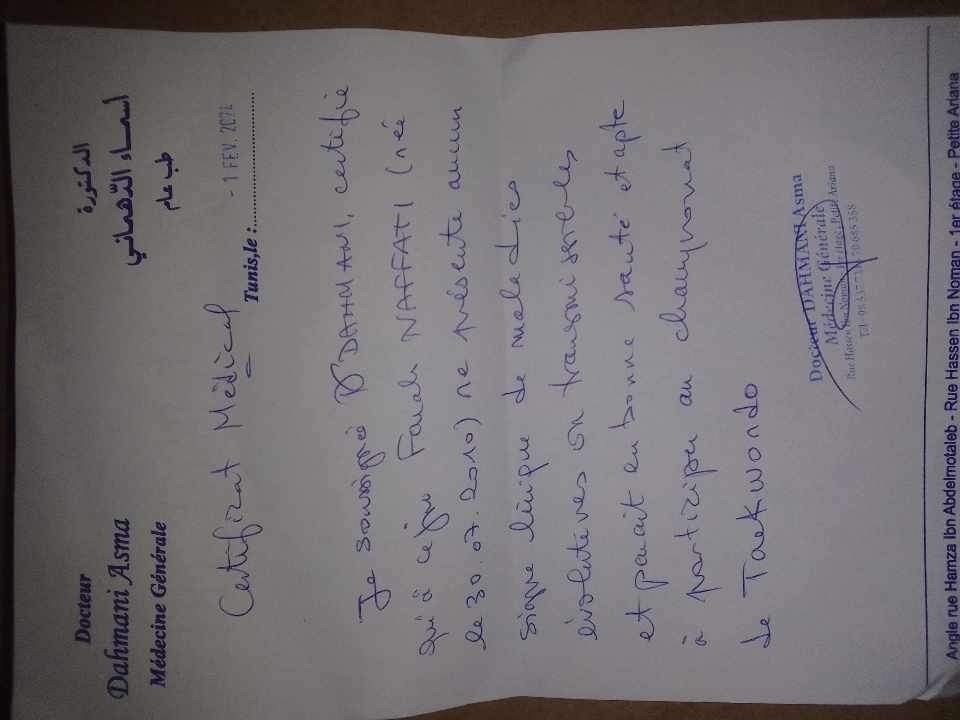 Docteur
Dahmani Asma
Médecine Générale
الدكتورة
اسماء الدهماني
طب عام
Tunis,le :.... - 1 FEV. 2024
Certificat Médical
Je soussigné Dr DAHMANI, certifie
qu'à ce jour Farah NAFFATI (née
le 30.07.2010) ne présente aucun
signe clinique de maladies
évolutives ou transmissibles
et parait en bonne santé et apte
à participer au championnat
de Taekwondo
Docteur DAHMANI Asma
Médecine Générale
Angle rue Hamza Ibn Abdelmotaleb - Rue Hassen Ibn Noman - 1er étage - Petite Ariana